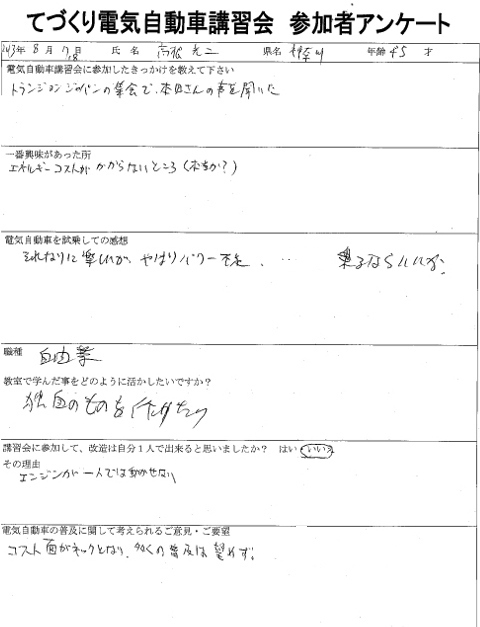 てづくり電気自動車講習会 参加者アンケート
年 8 月 17,18 氏 名 高松 県名 神奈川 年齢 45 才
電気自動車講習会に参加したきっかけを教えて下さい
トランジションジャパンの集会で、本田さんの声を聞いた
一番興味があった所
エネルギーコストがかからないところ(本当か?)
電気自動車を試乗しての感想
それなりに楽しいが、やはりパワー不足、… ならいいか。
職種 自由業
教室で学んだ事をどのように活かしたいですか?
独自のものを作りたい
講習会に参加して、改造は自分1人で出来ると思いましたか? はい いいえ
その理由
エンジンが一人では動かせない
電気自動車の普及に関して考えられるご意見・ご要望
コスト面がネックとなり、多くの普及は望めず。